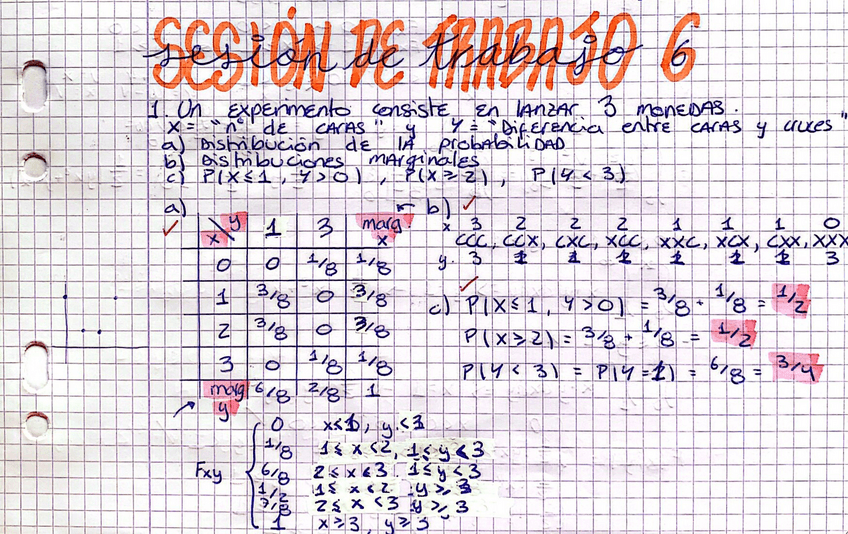 SESIÓN DE TRABAJO 6
sesión de trabajo
1. Un experimento consiste en lanzar 3 monedas.
X = "nº de caras" y Y = "Diferencia entre caras y cruces"
a) Distribución de la probabilidad
b) Distribuciones marginales
c) P(X≤1, Y>0), P(X≥2), P(Y<3)
a) ✓
x\y 1 3 marg. x
0 0 1/8 1/8
1 3/8 0 3/8
2 3/8 0 3/8
3 0 1/8 1/8
marg y 6/8 2/8 1
← b) ✓
x 3 2 2 2 1 1 1 0
CCC, CCX, CXC, XCC, XXC, XCX, CXX, XXX
y. 3 1 1 1 1 1 1 3
c) ✓ P(X≤1, Y>0) = 3/8 + 1/8 = 1/2
P(X≥2) = 3/8 + 1/8 = 1/2
P(Y<3) = P(Y=1) = 6/8 = 3/4
Fxy
0 y<1
1/8 1≤x<2, 1≤y<3
6/8 2≤x<3. 1≤y<3
1/2 1≤x<2 y≥3
7/8 2≤x<3 y≥3
1 x≥3, y≥3